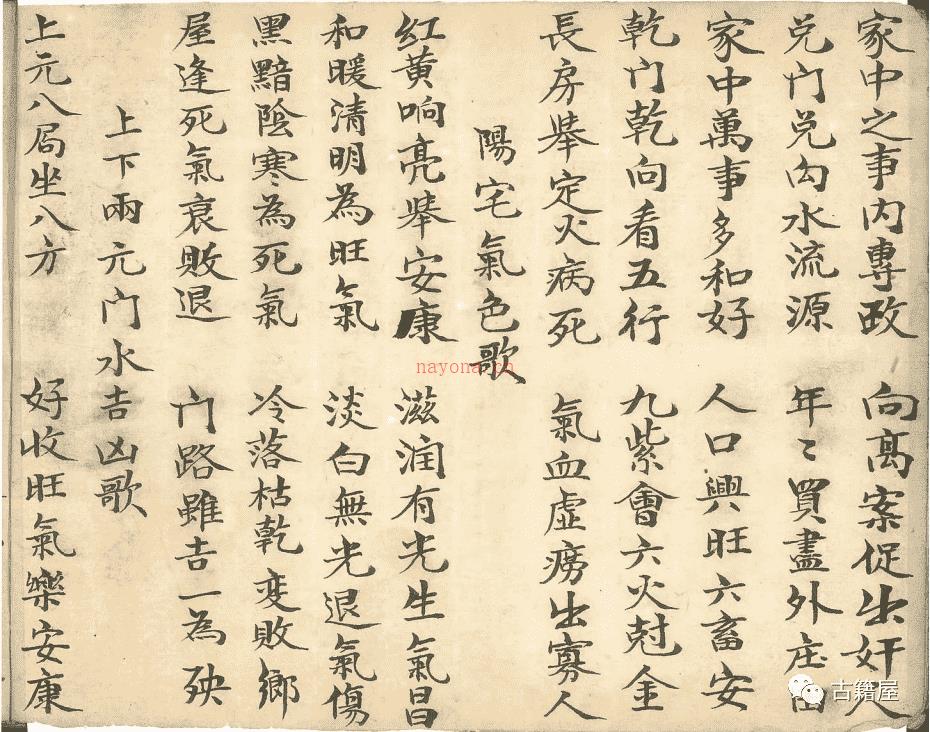 家中之事内專政 向髙案促出奸人
兑门兑向水流源 年〻買盡外庄田
家中萬事多和好 人口興旺六畜安
乾门乾向看五行 九紫會六火尅金
長房犖定火病死 氣血虚癆出寡人
陽宅氣色歌
红黄响亮犖安康 滋润有光生氣昌
和暖清明為旺氣 淡白無光退氣傷
黑黯陰寒為死氣 冷落枯乾变敗鄉
屋逢死氣衰敗退 门路雖吉一為殃
上下兩元门水吉凶歌
上元八局坐八方 好收旺氣樂安康
nayona.cn
古籍屋